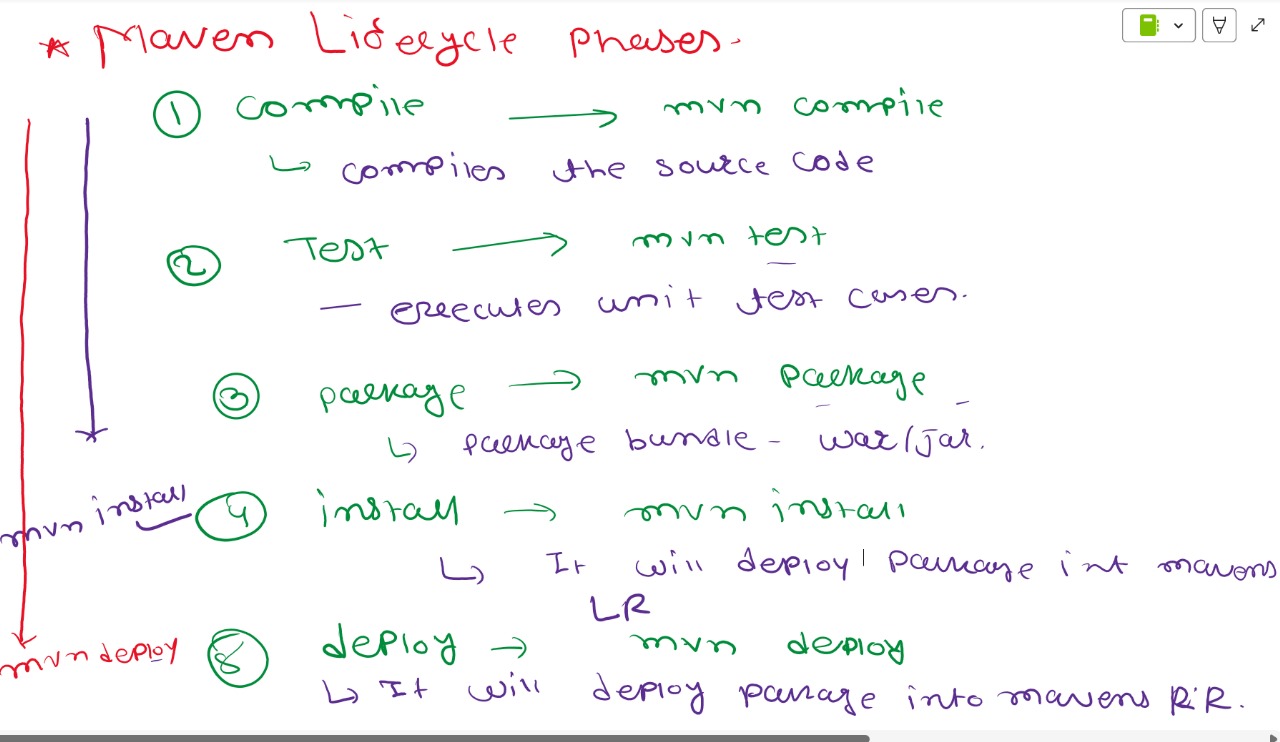 * Maven Lifecycle phases.
① compile → mvn compile
↳ compiles the source code
② Test → mvn test
— executes unit test cases.
③ package → mvn package
↳ package bundle - war/jar.
mvn install
④ install → mvn install
↳ It will deploy package int mavens
LR
mvn deploy
⑧ deploy → mvn deploy
↳ It will deploy package into mavens R.R.